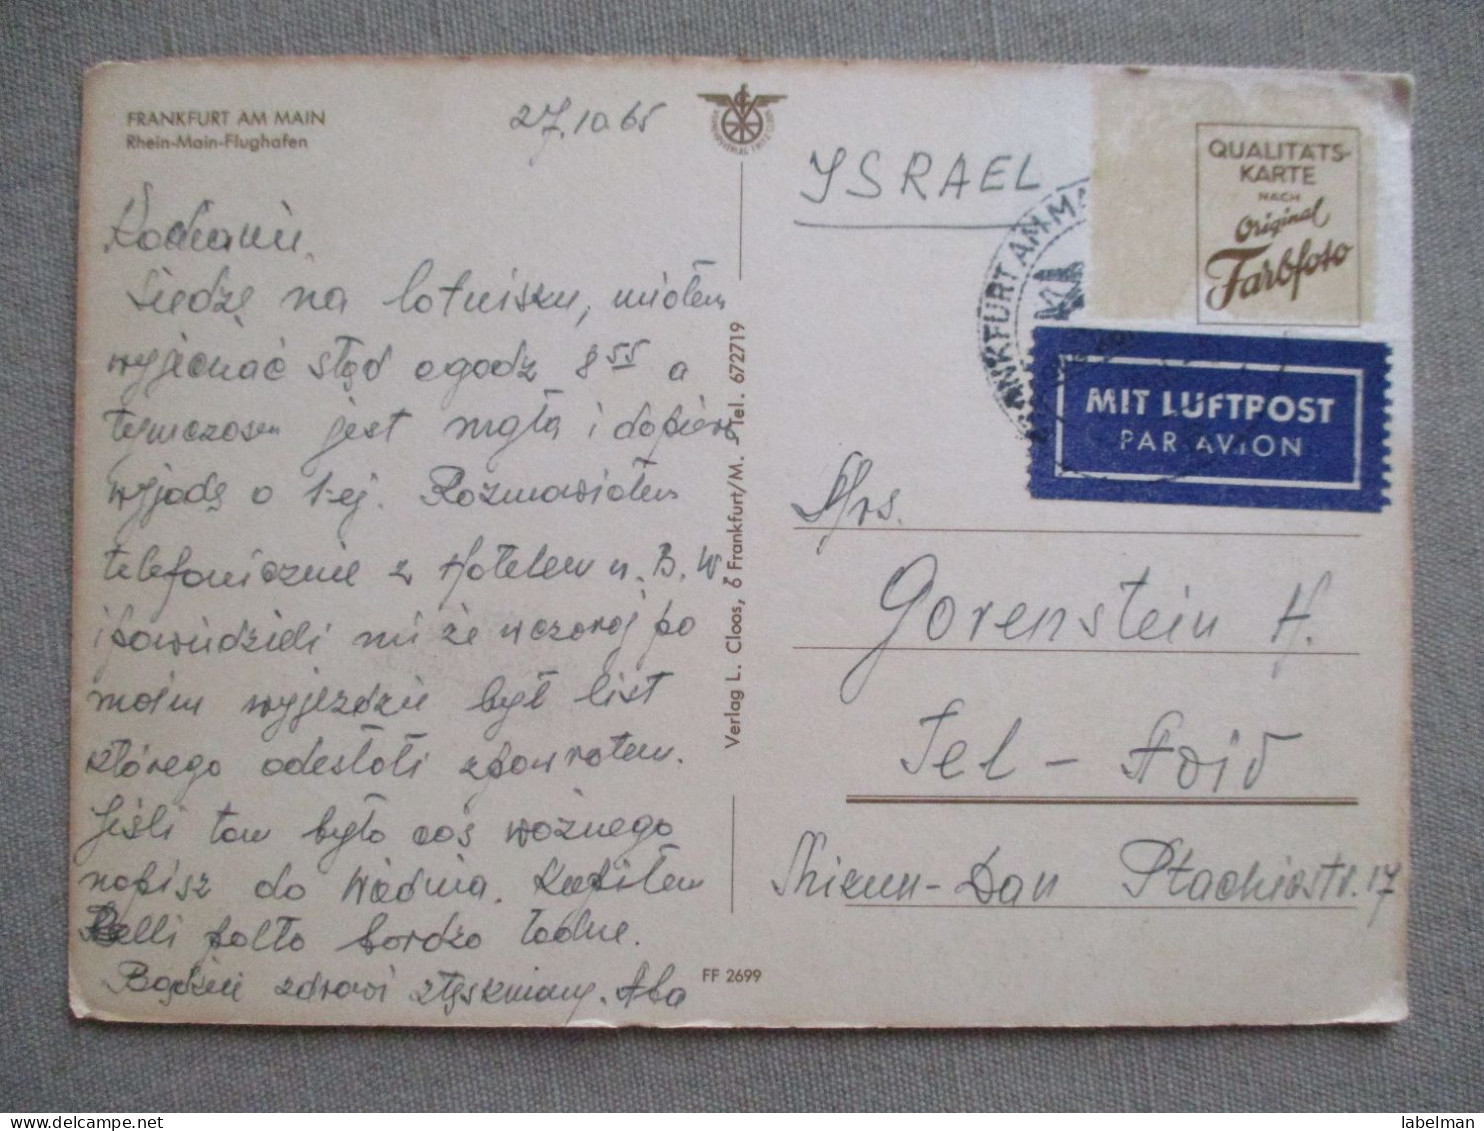 FRANKFURT AM MAIN
Rhein-Main-Flughafen
27.10.65
Kochani!
Siedzę na lotnisku, miałem
wyjechać stąd o godz 8 55 a
tymczasem jest mgła i dopiero
wyjadę o 1-ej. Rozmawiałem
telefonicznie z Hotelem u. B. W
i powiedzieli mi że wczoraj po
moim wyjeździe był list
którego odesłali zpowrotem.
Jeśli tam było coś ważnego
napisz do Wiednia. Kupiłem
Lelli palto bardzo ładne.
Bądźcie zdrowi stęskniony. Aba
Verlag L. Cloos, 6 Frankfurt/M. - Tel. 672719
FF 2699
ISRAEL
FRANKFURT AM MA
QUALITÄTS-
KARTE
NACH
Original
Farbfoto
MIT LUFTPOST
PAR AVION
Mrs.
Gorenstein H.
Tel-Awiv
Shikun-Dan
17